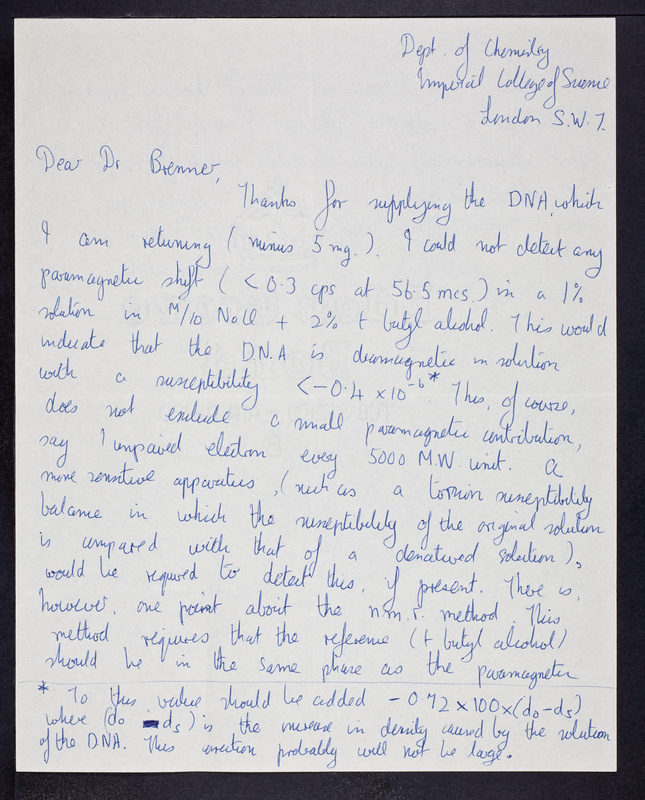 Dept. of Chemistry
Imperial College of Science
London S.W.7.
Dear Dr. Brenner,
Thanks for supplying the DNA, which
I am returning (minus 5 mg.). I could not detect any
paramagnetic shift (< 0.3 cps at 56.5 mcs.) in a 1%
solution in M/10 NaCl + 2% t butyl alcohol. This would
indicate that the D.N.A is diamagnetic in solution
with a susceptibility < -0.4 x 10⁻⁶*. This, of course,
does not exclude a small paramagnetic contribution,
say 1 unpaired electron every 5000 M.W. unit. A
more sensitive apparatus, (such as a torsion susceptibility
balance in which the susceptibility of the original solution
is compared with that of a denatured solution),
would be required to detect this, if present. There is,
however, one point about the n.m.r. method. This
method requires that the reference (t butyl alcohol)
should be in the same phase as the paramagnetic
* To this value should be added -0.72 x 100 x (do-ds)
where (do - ds) is the increase in density caused by the solution
of the DNA. This correction probably will not be large.